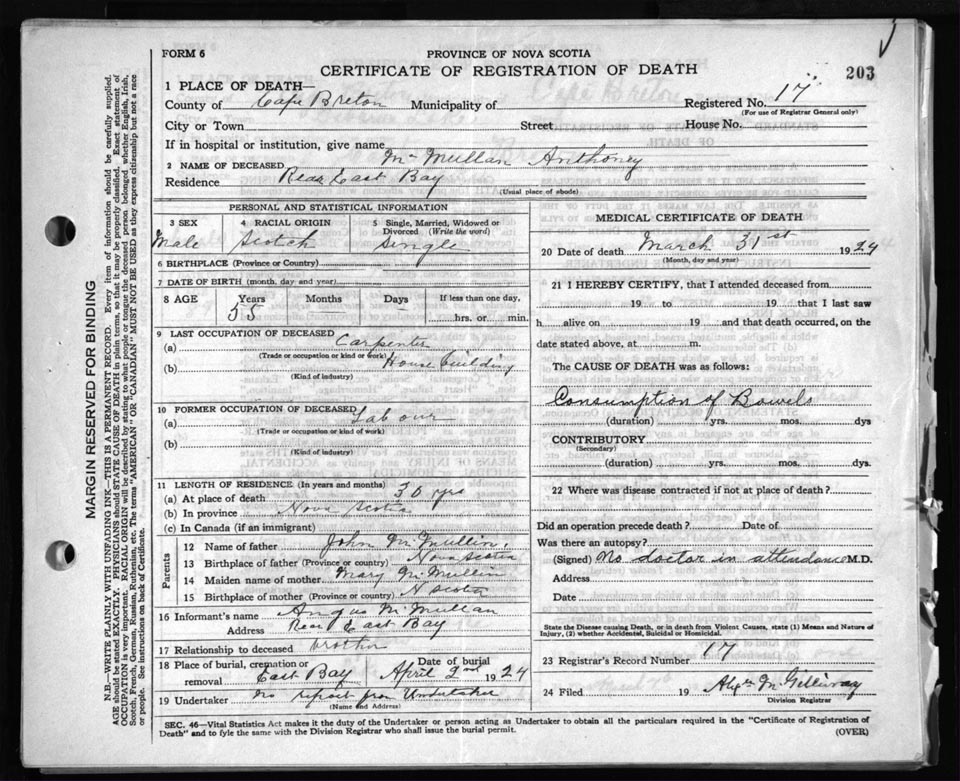 FORM 6
PROVINCE OF NOVA SCOTIA
CERTIFICATE OF REGISTRATION OF DEATH
203
1 PLACE OF DEATH—
County of Cape Breton Municipality of Registered No. 17
(For use of Registrar General only)
City or Town Street House No.
If in hospital or institution, give name
2 NAME OF DECEASED McMullan Anthoney
Residence Rear East Bay
(Usual place of abode)
PERSONAL AND STATISTICAL INFORMATION
3 SEX 4 RACIAL ORIGIN 5 Single, Married, Widowed or Divorced (Write the word)
Male Scotch Single
6 BIRTHPLACE (Province or Country)
7 DATE OF BIRTH (month, day and year)
8 AGE Years Months Days If less than one day,
55 hrs. or min.
9 LAST OCCUPATION OF DECEASED
(a) Carpenter
(Trade or occupation or kind or work)
(b) House building
(Kind of industry)
10 FORMER OCCUPATION OF DECEASED
(a) Labour
(Trade or occupation or kind of work)
(b)
(Kind of industry)
11 LENGTH OF RESIDENCE (In years and months)
(a) At place of death 30 yrs
(b) In province Nova Scotia
(c) In Canada (if an immigrant)
Parents
12 Name of father John McMullin
13 Birthplace of father (Province or country) Nova Scotia
14 Maiden name of mother Mary McMullin
15 Birthplace of mother (Province or country) N Scotia
16 Informant's name Angus McMullan
Address Rear East Bay
17 Relationship to deceased brother
18 Place of burial, cremation or removal East Bay Date of burial April 2nd 1924
19 Undertaker no report from Undertaker
(Name and Address)
MEDICAL CERTIFICATE OF DEATH
20 Date of death March 31st 1924
(Month, day and year)
21 I HEREBY CERTIFY, that I attended deceased from
19 to 19 that I last saw
h alive on 19 and that death occurred, on
date stated above, at m.
The CAUSE OF DEATH was as follows:
Consumption of Bowels
(duration) yrs. mos. dys
CONTRIBUTORY
(Secondary)
(duration) yrs. mos. dys.
22 Where was disease contracted if not at place of death?
Did an operation precede death? Date of
Was there an autopsy?
(Signed) No doctor in attendance M.D.
Address
Date
State the Disease causing Death, or in death from Violent Causes, state (1) Means and Nature of Injury, (2) whether Accidental, Suicidal or Homicidal.
23 Registrar's Record Number 17
24 Filed 19 Alex McGillivray
Division Registrar
SEC. 46—Vital Statistics Act makes it the duty of the Undertaker or person acting as Undertaker to obtain all the particulars required in the "Certificate of Registration of
Death" and to fyle the same with the Division Registrar who shall issue the burial permit.
(OVER)
MARGIN RESERVED FOR BINDING
N.B.—WRITE PLAINLY WITH UNFADING INK—THIS IS A PERMANENT RECORD. Every item of information should be carefully supplied.
AGE should be stated EXACTLY. PHYSICIANS should STATE CAUSE OF DEATH in plain terms, so that it may be properly classified. Exact statement of
OCCUPATION is very important. RACIAL ORIGIN will be described by stating to what people or tongue the deceased person belonged whether English, Irish,
Scotch, French, German, Russian, Ruthenian, etc. The terms "AMERICAN" OR "CANADIAN" MUST NOT BE USED as they express citizenship but not a race
or people. See instructions on back of Certificate.